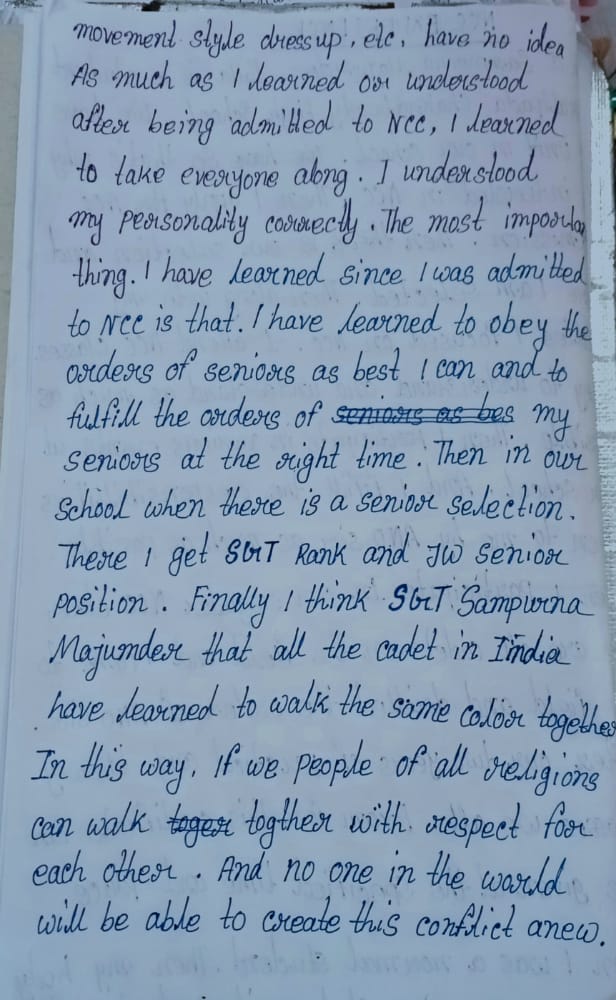 movement style dress up, etc, have no idea
As much as I learned or understood
after being admitted to NCC, I learned
to take everyone along. I understood
my personality correctly. The most importan
thing. I have learned since I was admitted
to NCC is that. I have learned to obey the
orders of seniors as best I can and to
fulfill the orders of seniors as bes my
seniors at the right time. Then in our
School when there is a senior selection.
There I get SGT Rank and JW senior
position. Finally I think SGT Sampurna
Majumder that all the cadet in India
have learned to walk the same color together
In this way, If we people of all religions
can walk toger togther with respect for
each other. And no one in the world
will be able to create this conflict anew.